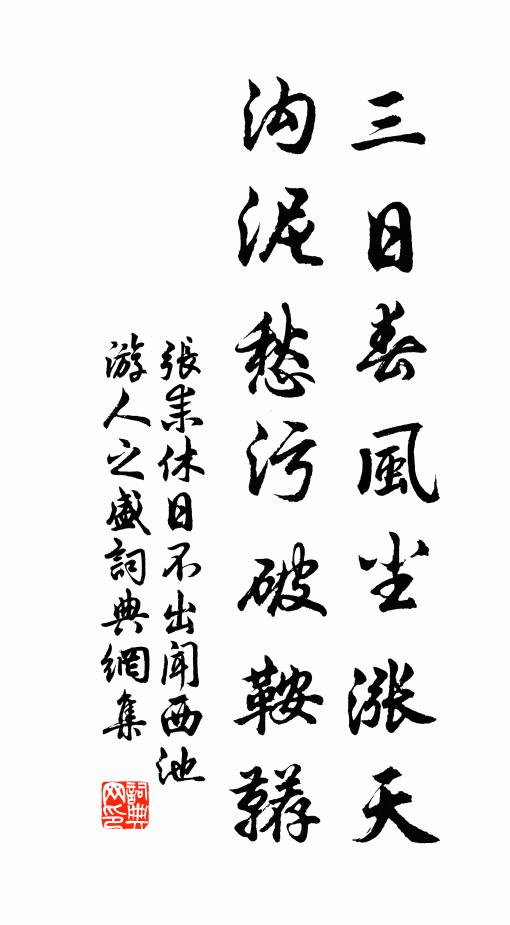 三日春風尘漲天
沟泥愁污破鞍韉
張耒休日不出聞西池
游人之盛詞典網集
詞典
网印